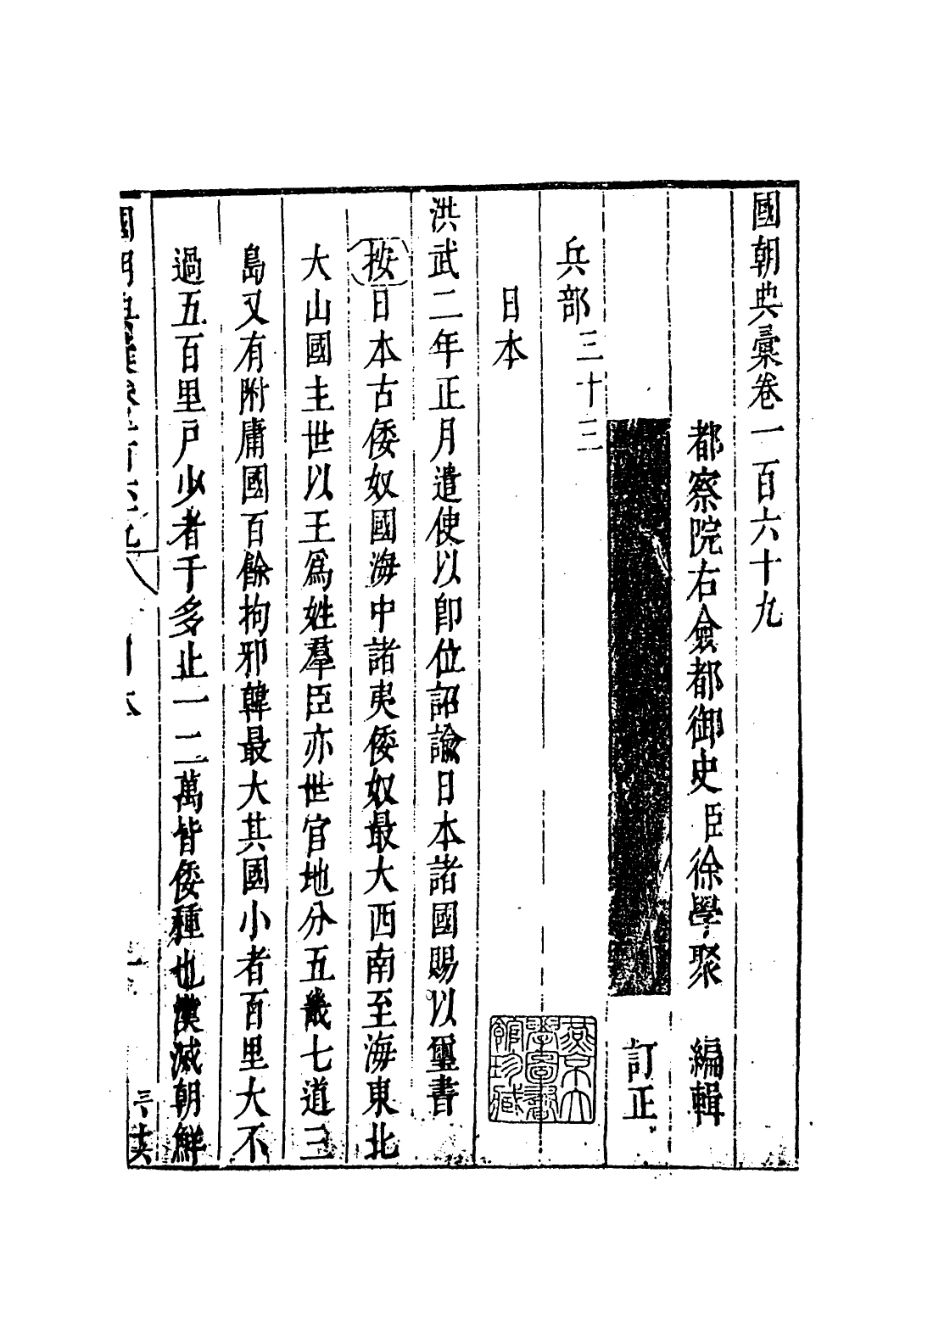 國朝典彙卷一百六十九
都察院右僉都御史臣徐學聚 編輯
訂正
兵部三十三
日本
洪武二年正月遣使以即位詔諭日本諸國賜以璽書
按日本古倭奴國海中諸夷倭奴最大西南至海東北
大山國主世以王爲姓羣臣亦世官地分五畿七道三
島又有附庸國百餘拘邪韓最大其國小者百里大不
過五百里戸少者千多止一二萬皆倭種也漢滅朝鮮
國朝典彙卷一百六九 日本
燕京大學圖書館珍藏